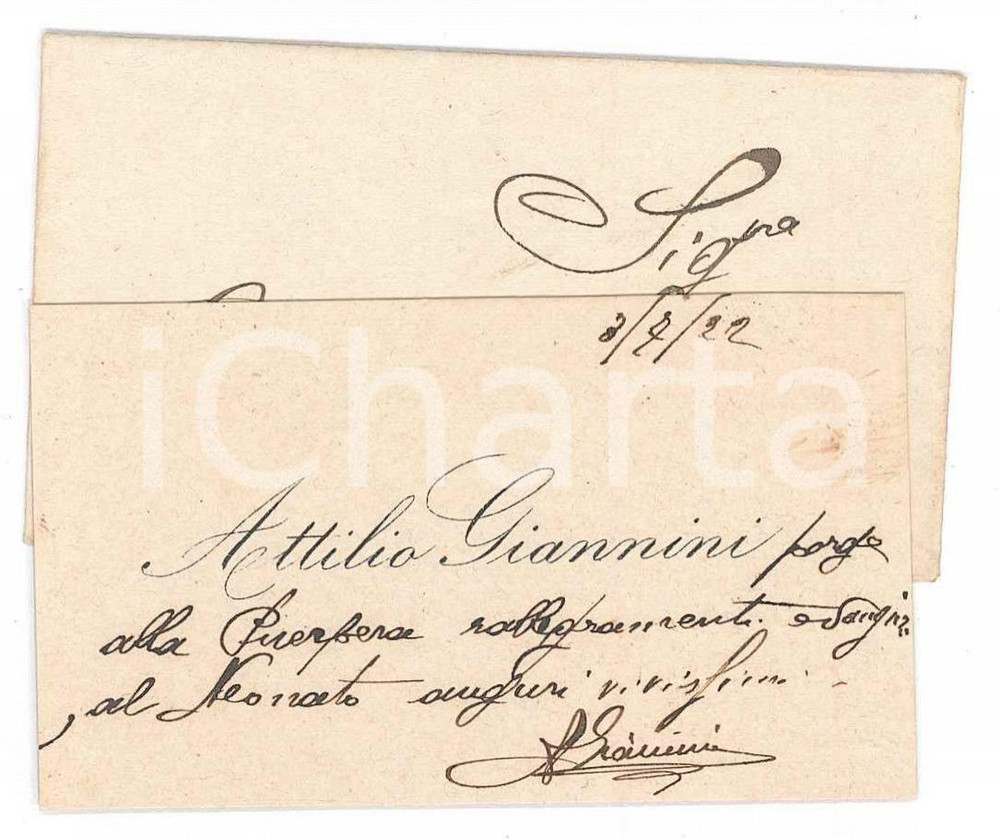 Sig.ra
3/7/22
iCharta
Attilio Giannini porge
alla Puerpera rallegramenti ed auguri
, al Neonato auguri vivissimi
AGiannini